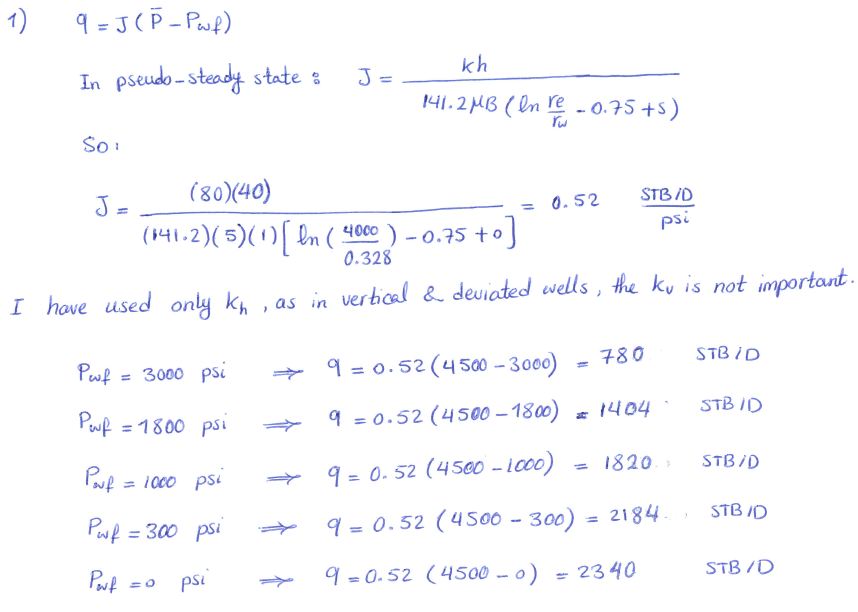 1) q = J ( P̄ - Pwf )
In pseudo-steady state : J = kh / 141.2 μB ( ln re/rw - 0.75 + s )
So :
J = (80)(40) / (141.2)(5)(1) [ ln ( 4000 / 0.328 ) - 0.75 + 0 ] = 0.52 STB/D / psi
I have used only kh , as in vertical & deviated wells , the kv is not important.
Pwf = 3000 psi ⇒ q = 0.52 (4500 - 3000) = 780 STB/D
Pwf = 1800 psi ⇒ q = 0.52 (4500 - 1800) = 1404 STB/D
Pwf = 1000 psi ⇒ q = 0.52 (4500 - 1000) = 1820 STB/D
Pwf = 300 psi ⇒ q = 0.52 (4500 - 300) = 2184 STB/D
Pwf = 0 psi ⇒ q = 0.52 (4500 - 0) = 2340 STB/D